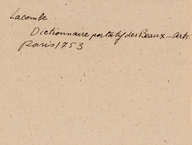 Lacombe
Dictionnaire portatif des Beaux-Arts
Paris 1753